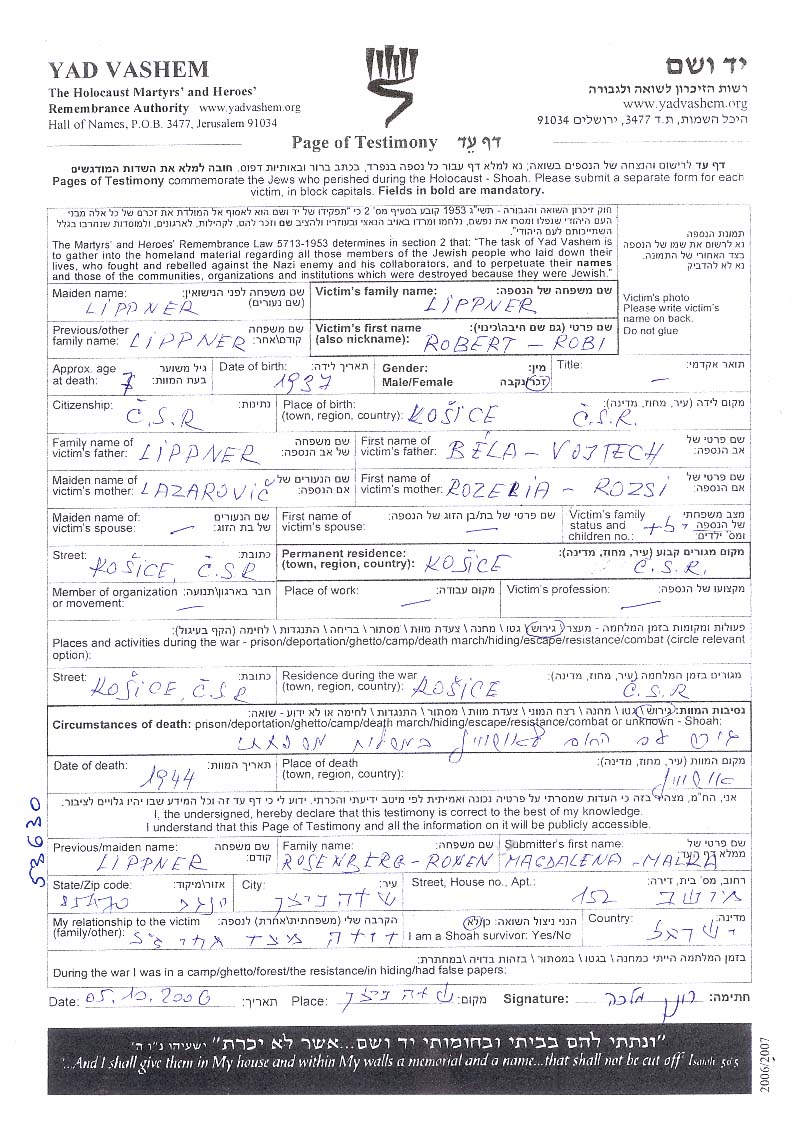 YAD VASHEM
The Holocaust Martyrs' and Heroes'
Remembrance Authority www.yadvashem.org
Hall of Names, P.O.B. 3477, Jerusalem 91034
יד ושם
רשות הזיכרון לשואה ולגבורה
www.yadvashem.org
היכל השמות, ת.ד 3477, ירושלים 91034
Page of Testimony דף עֵד
דף עד לרישום והנצחה של הנספים בשואה; נא למלא דף עבור כל נספה בנפרד, בכתב ברור ובאותיות דפוס. חובה למלא את השדות המודגשים
Pages of Testimony commemorate the Jews who perished during the Holocaust - Shoah. Please submit a separate form for each
victim, in block capitals. Fields in bold are mandatory.
חוק זיכרון השואה והגבורה - תשי"ג 1953 קובע בסעיף מס' 2 כי "תפקידו של יד ושם הוא לאסוף אל המולדת את זכרם של כל אלה מבני
העם היהודי שנפלו ומסרו את נפשם, נלחמו ומרדו באויב הנאצי ובעוזריו ולהציב שם וזכר להם, לקהילות, לארגונים, ולמוסדות שנחרבו בגלל
השתייכותם לעם היהודי".
The Martyrs' and Heroes' Remembrance Law 5713-1953 determines in section 2 that: "The task of Yad Vashem is
to gather into the homeland material regarding all those members of the Jewish people who laid down their
lives, who fought and rebelled against the Nazi enemy and his collaborators, and to perpetuate their names
and those of the communities, organizations and institutions which were destroyed because they were Jewish."
תמונת הנספה
נא לרשום את שמו של הנספה
בצד האחורי של התמונה.
נא לא להדביק
Victim's photo
Please write victim's
name on back.
Do not glue
Maiden name: שם משפחה לפני הנישואין: (שם נעורים)
LIPPNER
Victim's family name: שם משפחה של הנספה:
LIPPNER
Previous/other family name: שם משפחה קודם/אחר:
LIPPNER
Victim's first name (also nickname): שם פרטי (גם שם חיבה/כינוי):
ROBERT - ROBI
Approx. age at death: גיל משוער בעת המוות:
7
Date of birth: תאריך לידה:
1937
Gender: מין:
Male/Female זכר/נקבה
Title: תואר אקדמי:
—
Citizenship: נתינות:
Č.S.R
Place of birth: (town, region, country): מקום לידה (עיר, מחוז, מדינה):
KOŠICE Č.S.R.
Family name of victim's father: שם משפחה של אב הנספה:
LIPPNER
First name of victim's father: שם פרטי של אב הנספה:
BÉLA - VOJTECH
Maiden name of victim's mother: שם הנעורים של אם הנספה:
LAZAROVIČ
First name of victim's mother: שם פרטי של אם הנספה:
ROZERIA - ROZSI
Maiden name of victim's spouse: שם הנעורים של בת הזוג:
—
First name of victim's spouse: שם פרטי של בת/בן הזוג של הנספה:
—
Victim's family status and children no.: מצב משפחתי של הנספה ומס' ילדים:
Street: כתובת:
KOŠICE, Č.S.R
Permanent residence: (town, region, country): מקום מגורים קבוע (עיר, מחוז, מדינה):
KOŠICE Č.S.R.
Member of organization or movement: חבר בארגון/תנועה:
—
Place of work: מקום עבודה:
—
Victim's profession: מקצועו של הנספה:
—
פעולות ומקומות בזמן המלחמה - מעצר\ גירוש\ גטו \ מחנה \ צעדת מוות \ מסתור \ בריחה \ התנגדות \ לחימה (הקף בעיגול):
Places and activities during the war - prison/deportation/ghetto/camp/death march/hiding/escape/resistance/combat (circle relevant
option):
Street: כתובת:
KOŠICE, Č.S.R
Residence during the war (town, region, country): מגורים בזמן המלחמה (עיר, מחוז, מדינה):
KOŠICE Č.S.R
נסיבות המוות: גירוש\ גטו \ מחנה \ רצח המוני \ צעדת מוות \ מסתור \ התנגדות \ לחימה או לא ידוע - שואה:
Circumstances of death: prison/deportation/ghetto/camp/death march/hiding/escape/resistance/combat or unknown - Shoah:
Date of death: תאריך המוות:
1944
Place of death (town, region, country): מקום המוות (עיר, מחוז, מדינה):
אושויץ
אני, הח"מ, מצהיר בזה כי העדות שמסרתי על פרטיה נכונה ואמיתית לפי מיטב ידיעתי והכרתי. ידוע לי כי דף עד זה וכל המידע שבו יהיו גלויים לציבור.
I, the undersigned, hereby declare that this testimony is correct to the best of my knowledge.
I understand that this Page of Testimony and all the information on it will be publicly accessible.
Previous/maiden name: שם משפחה קודם:
LIPPNER
Family name: שם משפחה:
ROSENBERG - RONEN
Submitter's first name: שם פרטי של ממלא דף העד:
MAGDALENA - MALKA
State/Zip code: אזור/מיקוד:
City: עיר:
שדה ניצן
Street, House no., Apt.: רחוב, מס' בית, דירה:
152
My relationship to the victim (family/other): הקרבה שלי (משפחתית/אחרת) לנספה:
I am a Shoah survivor: Yes/No הנני ניצול השואה: כן/לא
Country: מדינה:
ישראל
בזמן המלחמה הייתי במחנה \ בגטו \ במסתור \ בזהות בדויה \ במחתרת:
During the war I was in a camp/ghetto/forest/the resistance/in hiding/had false papers:
Date: 05.10.2006 תאריך: Place: שדה ניצן מקום: Signature: רונן מלכה חתימה:
"ונתתי להם בביתי ובחומותי יד ושם...אשר לא יכרת" ישעיהו נ"ו ה'
'...And I shall give them in My house and within My walls a memorial and a name...that shall not be cut off' Isaiah 56:5
53630
2006/2007